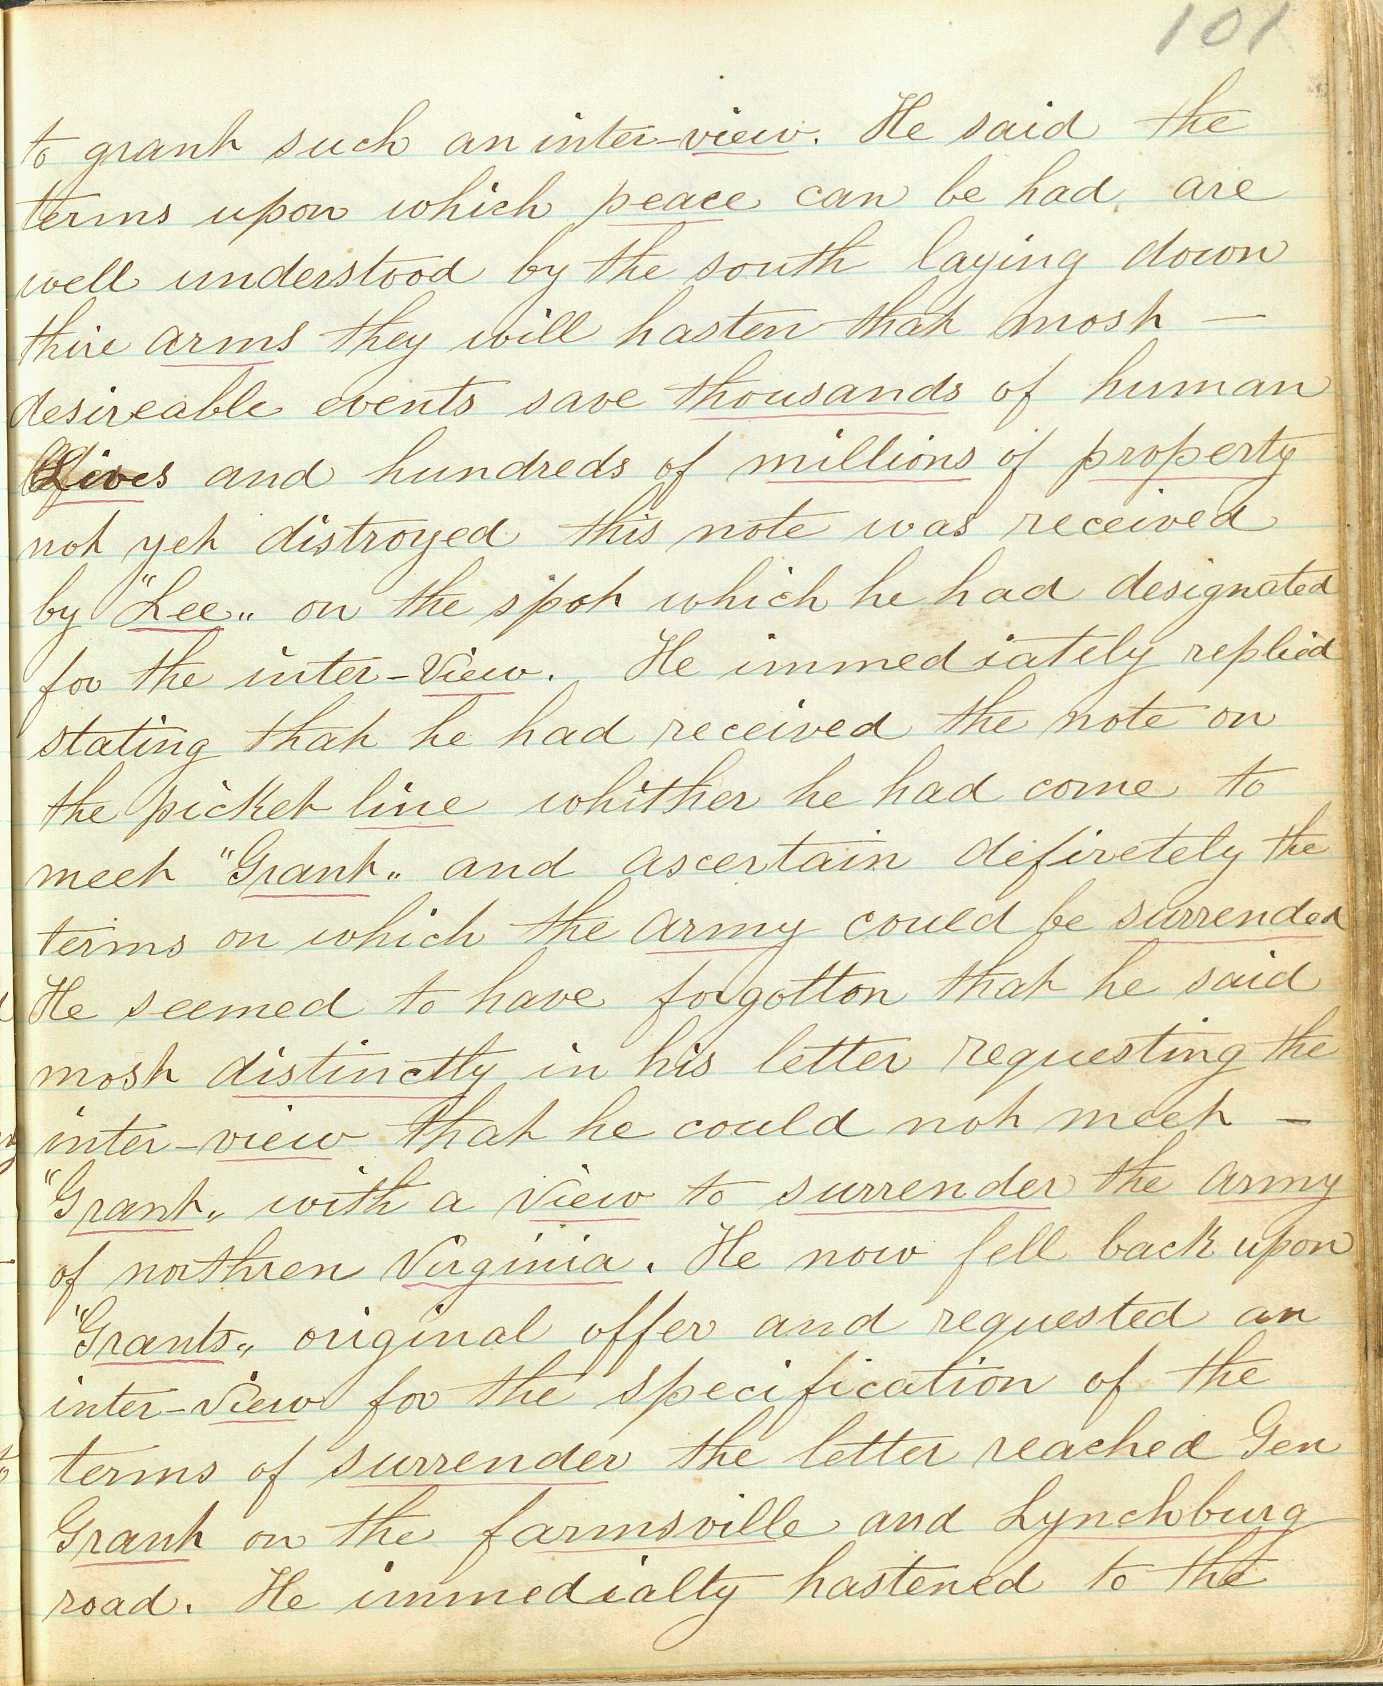 101
to grant such an inter-view. He said the
terms upon which peace can be had, are
well understood by the south laying down
thire arms they will hasten that most —
desireable events save thousands of human
Lives and hundreds of millions of property
not yet distroyed this note was received
by "Lee„ on the spot which he had designated
for the inter-View. He immediately replied
stating that he had received the note on
the picket line whither he had come to
meet "Grant„ and ascertain defiretely the
terms on which the army could be surrended
He seemed to have forgotton that he said
most distinctly in his letter requesting the
inter-view that he could not meet —
"Grant„ with a view to surrender the army
of northren Virginia. He now fell back upon
"Grants„ original offer and requested an
inter-view for the specification of the
terms of surrender the letter reached Gen
Grant on the farmsville and Lynchburg
road. He immedialty hastened to the